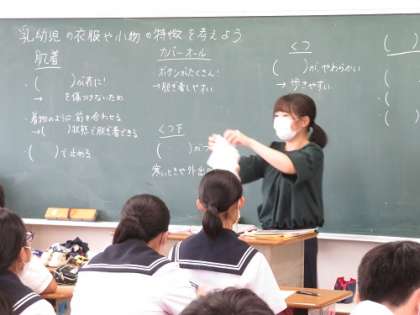 乳幼児の衣服や小物の特徴を考えよう
肌着
・(　　)が表に!
→ を傷つけないため
着物のように前を合わせる
→(　　)状態で脱ぎ着できる
・(　　)で止める
カバーオール
ボタンがたくさん!
→脱ぎ着しやすい
くつ下
・(　　)がつ
寒いときや外出
くつ
・(　　)が、やわらかい
→ 歩きやすい
・(
・(